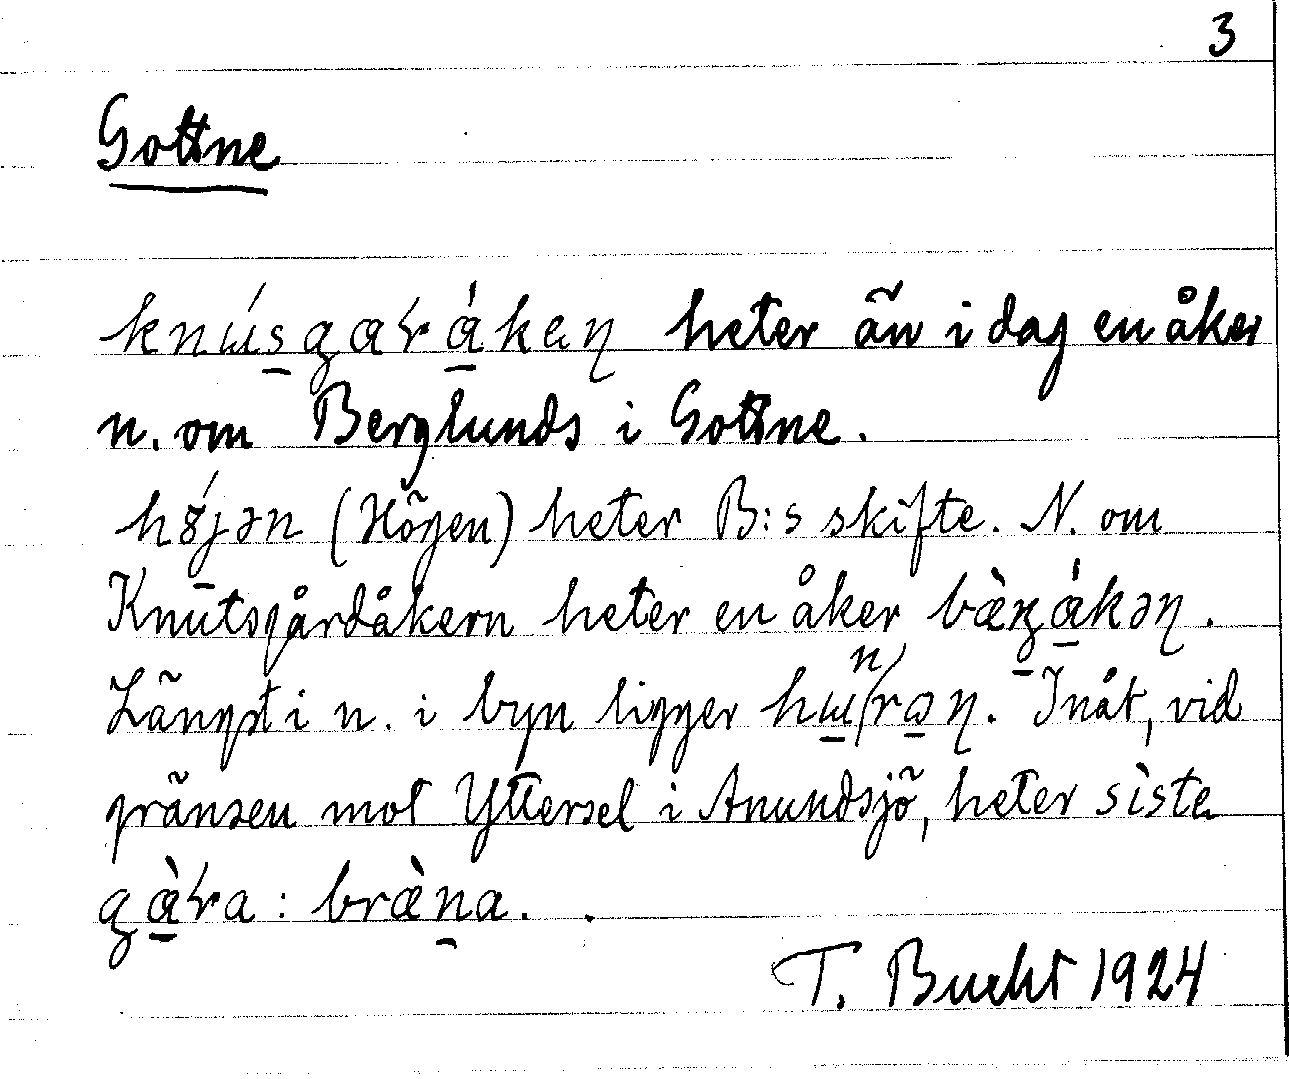 3
Gottne
knɯ́s̱gaɼá̱kaɳ heter än i dag en åker
n. om Berglunds i Gottne.
hɤ́jən (Högen) heter B:s skifte. N. om
Knutsgårdåkern heter en åker bæ̀ʒá̱kəɳ.
Längst i n. i byn ligger hɯ̱nrə̱ɳ. Inåt, vid
gränsen mot Yttersel i Anundsjö, heter sista
gà̱ɼa: bræ̀ṉa.
T. Bucht 1924